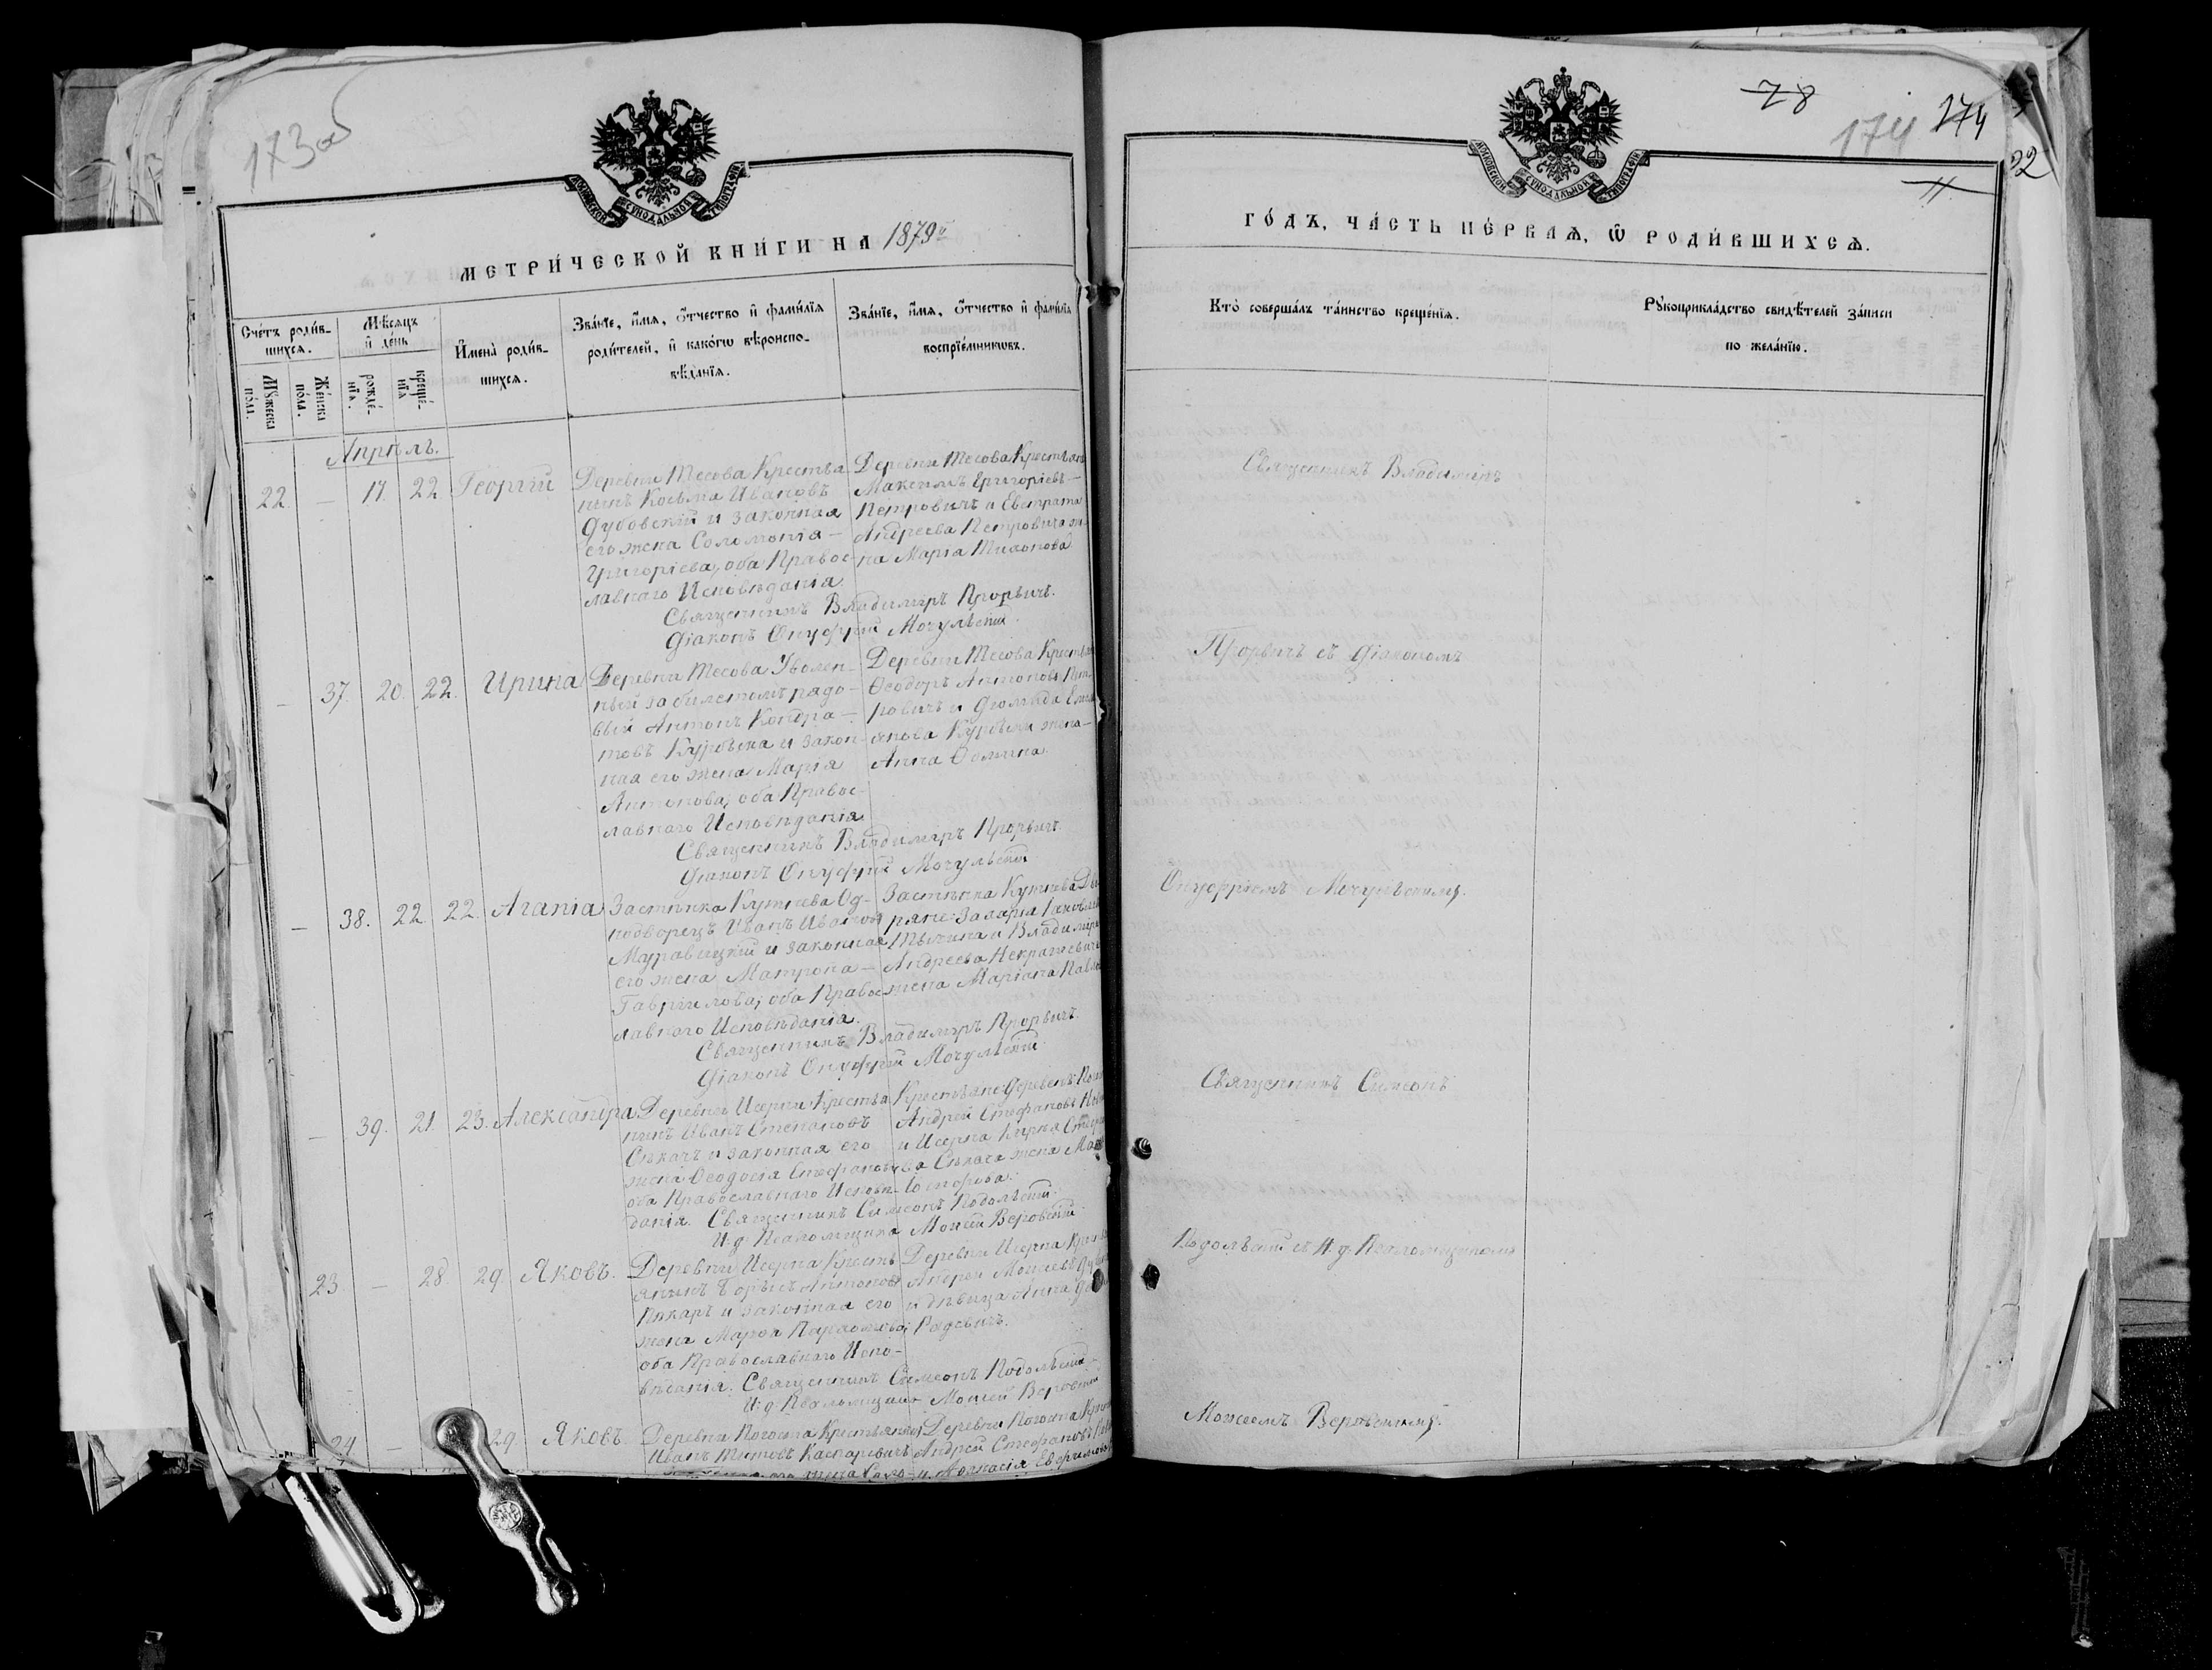 173 об
МОСКОВСКОЙ СѴНОДАЛЬНОЙ ТИПОГРАФІИ
МЕТРИ́ЧЕСКОЙ КНИ́ГИ НА 1879й
Сче́тъ роди́в-
шихсѧ.
Мꙋ́жеска
по́ла.
Же́нска
по́ла.
Мѣ́сѧцъ
и҆ де́нь
рожде́-
нїѧ.
креще́-
нїѧ
И҆мена̀ роди́в-
шихсѧ.
Зва́нїе, и҆́мѧ, ѻ҆́тчество и҆ фами́лїѧ
роди́телей, и҆ како́гѡ вѣроиспо-
вѣ́данїѧ.
Зва́нїе, и҆́мѧ, ѻ҆́тчество и҆ фами́лїѧ
воспрїе́мникѡвъ.
Апрѣль.
22. — 17. 22 Георгій
Деревни Тесова Крестья-
нинъ Косьма Ивановъ
Дубовскій и законная
его жена Соломонія —
Григоріева, оба Правос-
лавнаго Исповѣданія.
Деревни Тесова Крестьян
Максимъ Григоріевъ —
Петровичъ и Евстрата
Андреева Петровича же-
на Марія Тихонова.
Священникъ Владиміръ Прорвичъ.
Діаконъ Онуфрій Мочульскій.
— 37. 20. 22. Ирина
Деревни Тесова Уволен-
ный за билетомъ рядо-
вый Антонъ Кондра-
товъ Курьека и закон-
ная его жена Марія
Антонова, оба Правос-
лавнаго Исповѣданія
Деревни Тесова Крестьян
Ѳеодоръ Антоновъ Пет-
ровичъ и Діомида
Курьеки жена —
Анна Ѳомина.
Священникъ Владиміръ Прорвичъ.
Діаконъ Онуфрій Мочульскій.
— 38. 22. 22. Агапіа
Застѣнка Кутнева Од-
нодворецъ Иванъ Ивановъ
Муравицкій и законная
его жена Матрона —
Гавріилова, оба Правос-
лавнаго Исповѣданія.
Застѣнка Кутнева Дво-
ряне: Захарія
и Владиміра
Андреева Некрашевича
жена Маріана
Священникъ Владиміръ Прорвичъ.
Діаконъ Онуфрій Мочульскій.
— 39. 21. 23. Александра
Деревни Исерна Крестья-
нинъ Иванъ Степановъ
Сѣкачъ и законная его
жена Ѳеодосія Стефанова,
оба Православнаго Исповѣ-
данія.
Крестьяне: Деревень
Андрей Стефановъ
и Исерна Кирила
Сѣкача жена
Іосифова.
Священникъ Симеонъ Подольскій.
И. д. Псаломщика Моисей Вержскій.
23 — 28. 29. Яковъ.
Деревни Исерна Кресть-
янинъ Борисъ Антоновъ
Пекаръ и законная его
жена Марѳа Пархомова,
оба Православнаго Испо-
вѣданія.
Деревни Исерна
Андрей Моисеевъ
и дѣвица Анна
Радевичъ.
Священникъ Симеонъ Подольскій —
И. д. Псаломщика Моисей Вержскій
24 — 29. Яковъ.
Деревни Погоста Крестьянинъ
Иванъ Титовъ Каспаревичъ
Деревни Погоста
Андрей Стефановъ
и Аѳанасія Ефрем
78
174 174
22
11
МОСКОВСКОЙ СѴНОДАЛЬНОЙ ТИПОГРАФІИ
ГО́ДЪ, ЧА́СТЬ ПЕ́РВАѦ, Ѡ҆ РОДИ́ВШИХСѦ.
Кто̀ соверша́лъ та́инство креще́нїѧ.
Рꙋкоприкла́дство свидѣ́телей за́писи
по жела́нїю.
Священникъ Владиміръ
Прорвичъ съ Діакономъ
Онуфріемъ Мочульскимъ.
Священникъ Симеонъ
Подольскій съ И. д. Псаломщикомъ
Моисеемъ Вержскимъ.